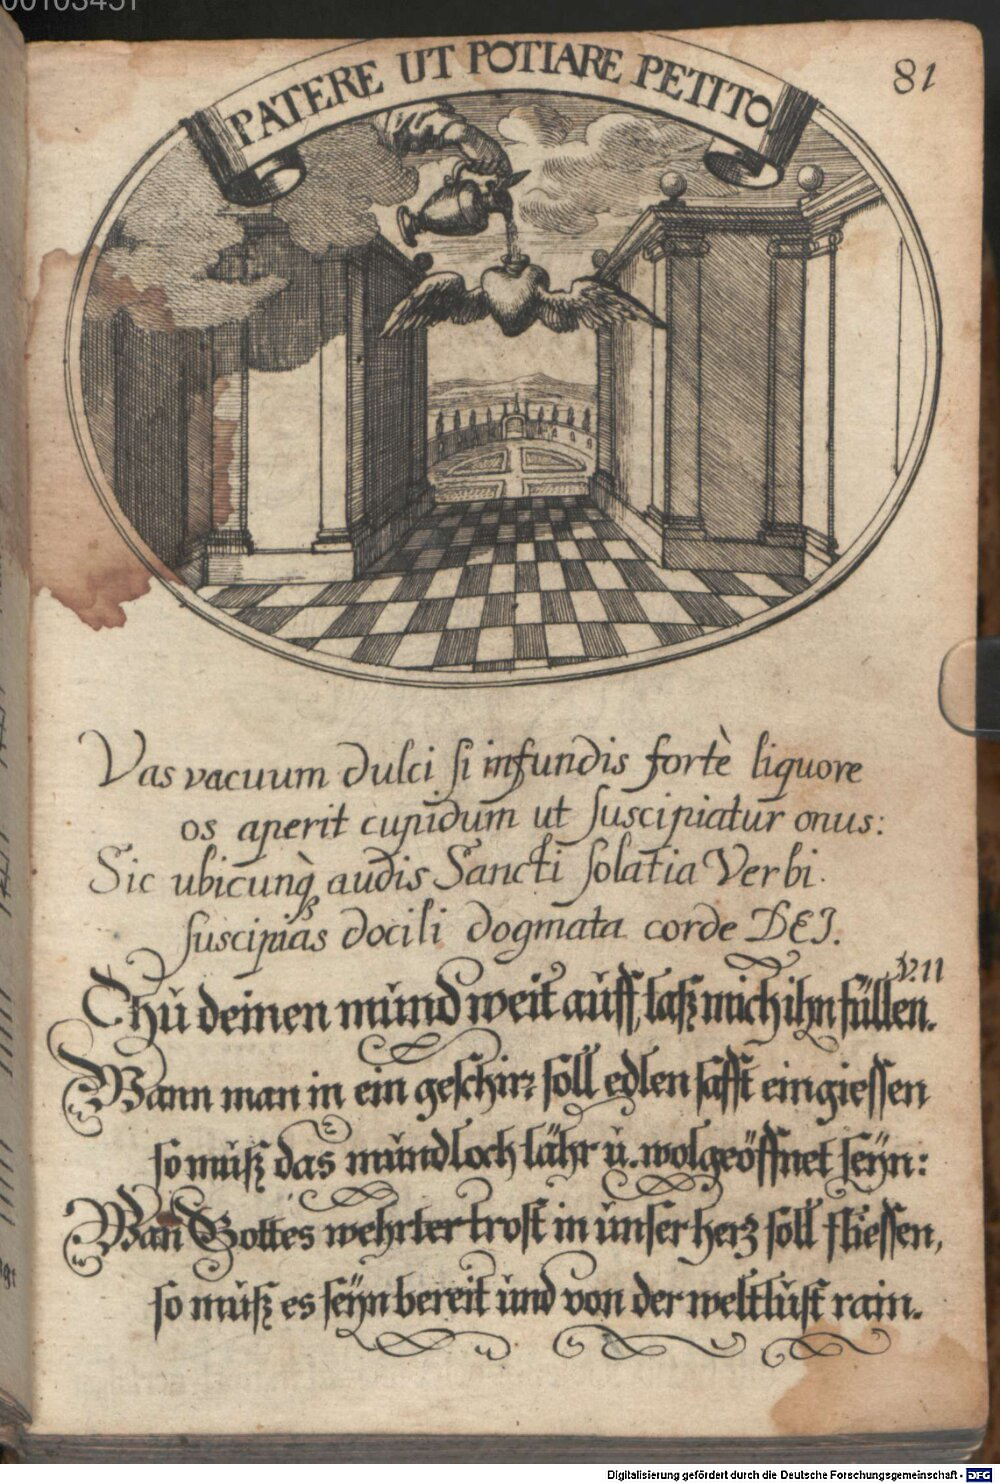 00103451
81
PATERE UT POTIARE PETITO
Vas vacuum dulci si infundis fortè liquore
os aperit cupidum ut suscipiatur onus:
Sic ubicunq̀ audis Sancti solatia Verbi.
suscipias docili dogmata corde DEI.
v. 11
Thŭ deinen mŭnd weit aŭff, laß mich ihn füllen.
Wann man in ein geschirꝛ soll edlen safft eingiessen
so mŭß das mŭndloch lähr ŭ. wolgeöffnet seÿn:
Wan̄ Gottes wehrter trost in ŭnser herz soll fliessen,
so mŭß es seÿn bereit ŭnd von der weltlŭst rain.
Digitalisierung gefördert durch die Deutsche Forschungsgemeinschaft - DFG